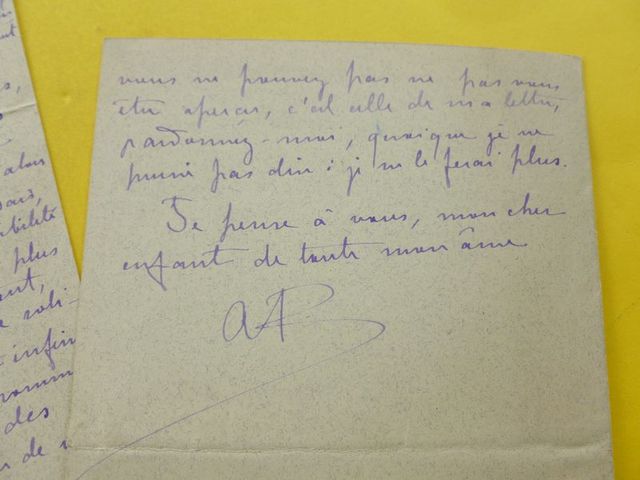 vous ne pouvez pas ne pas vous
être aperçu, c'est celle de ma lettre,
pardonnez-moi, quoique je ne
puisse pas dire : je ne le ferai plus.
Je pense à vous, mon cher
enfant de toute mon âme
AP
alors
plus
infini
des
de